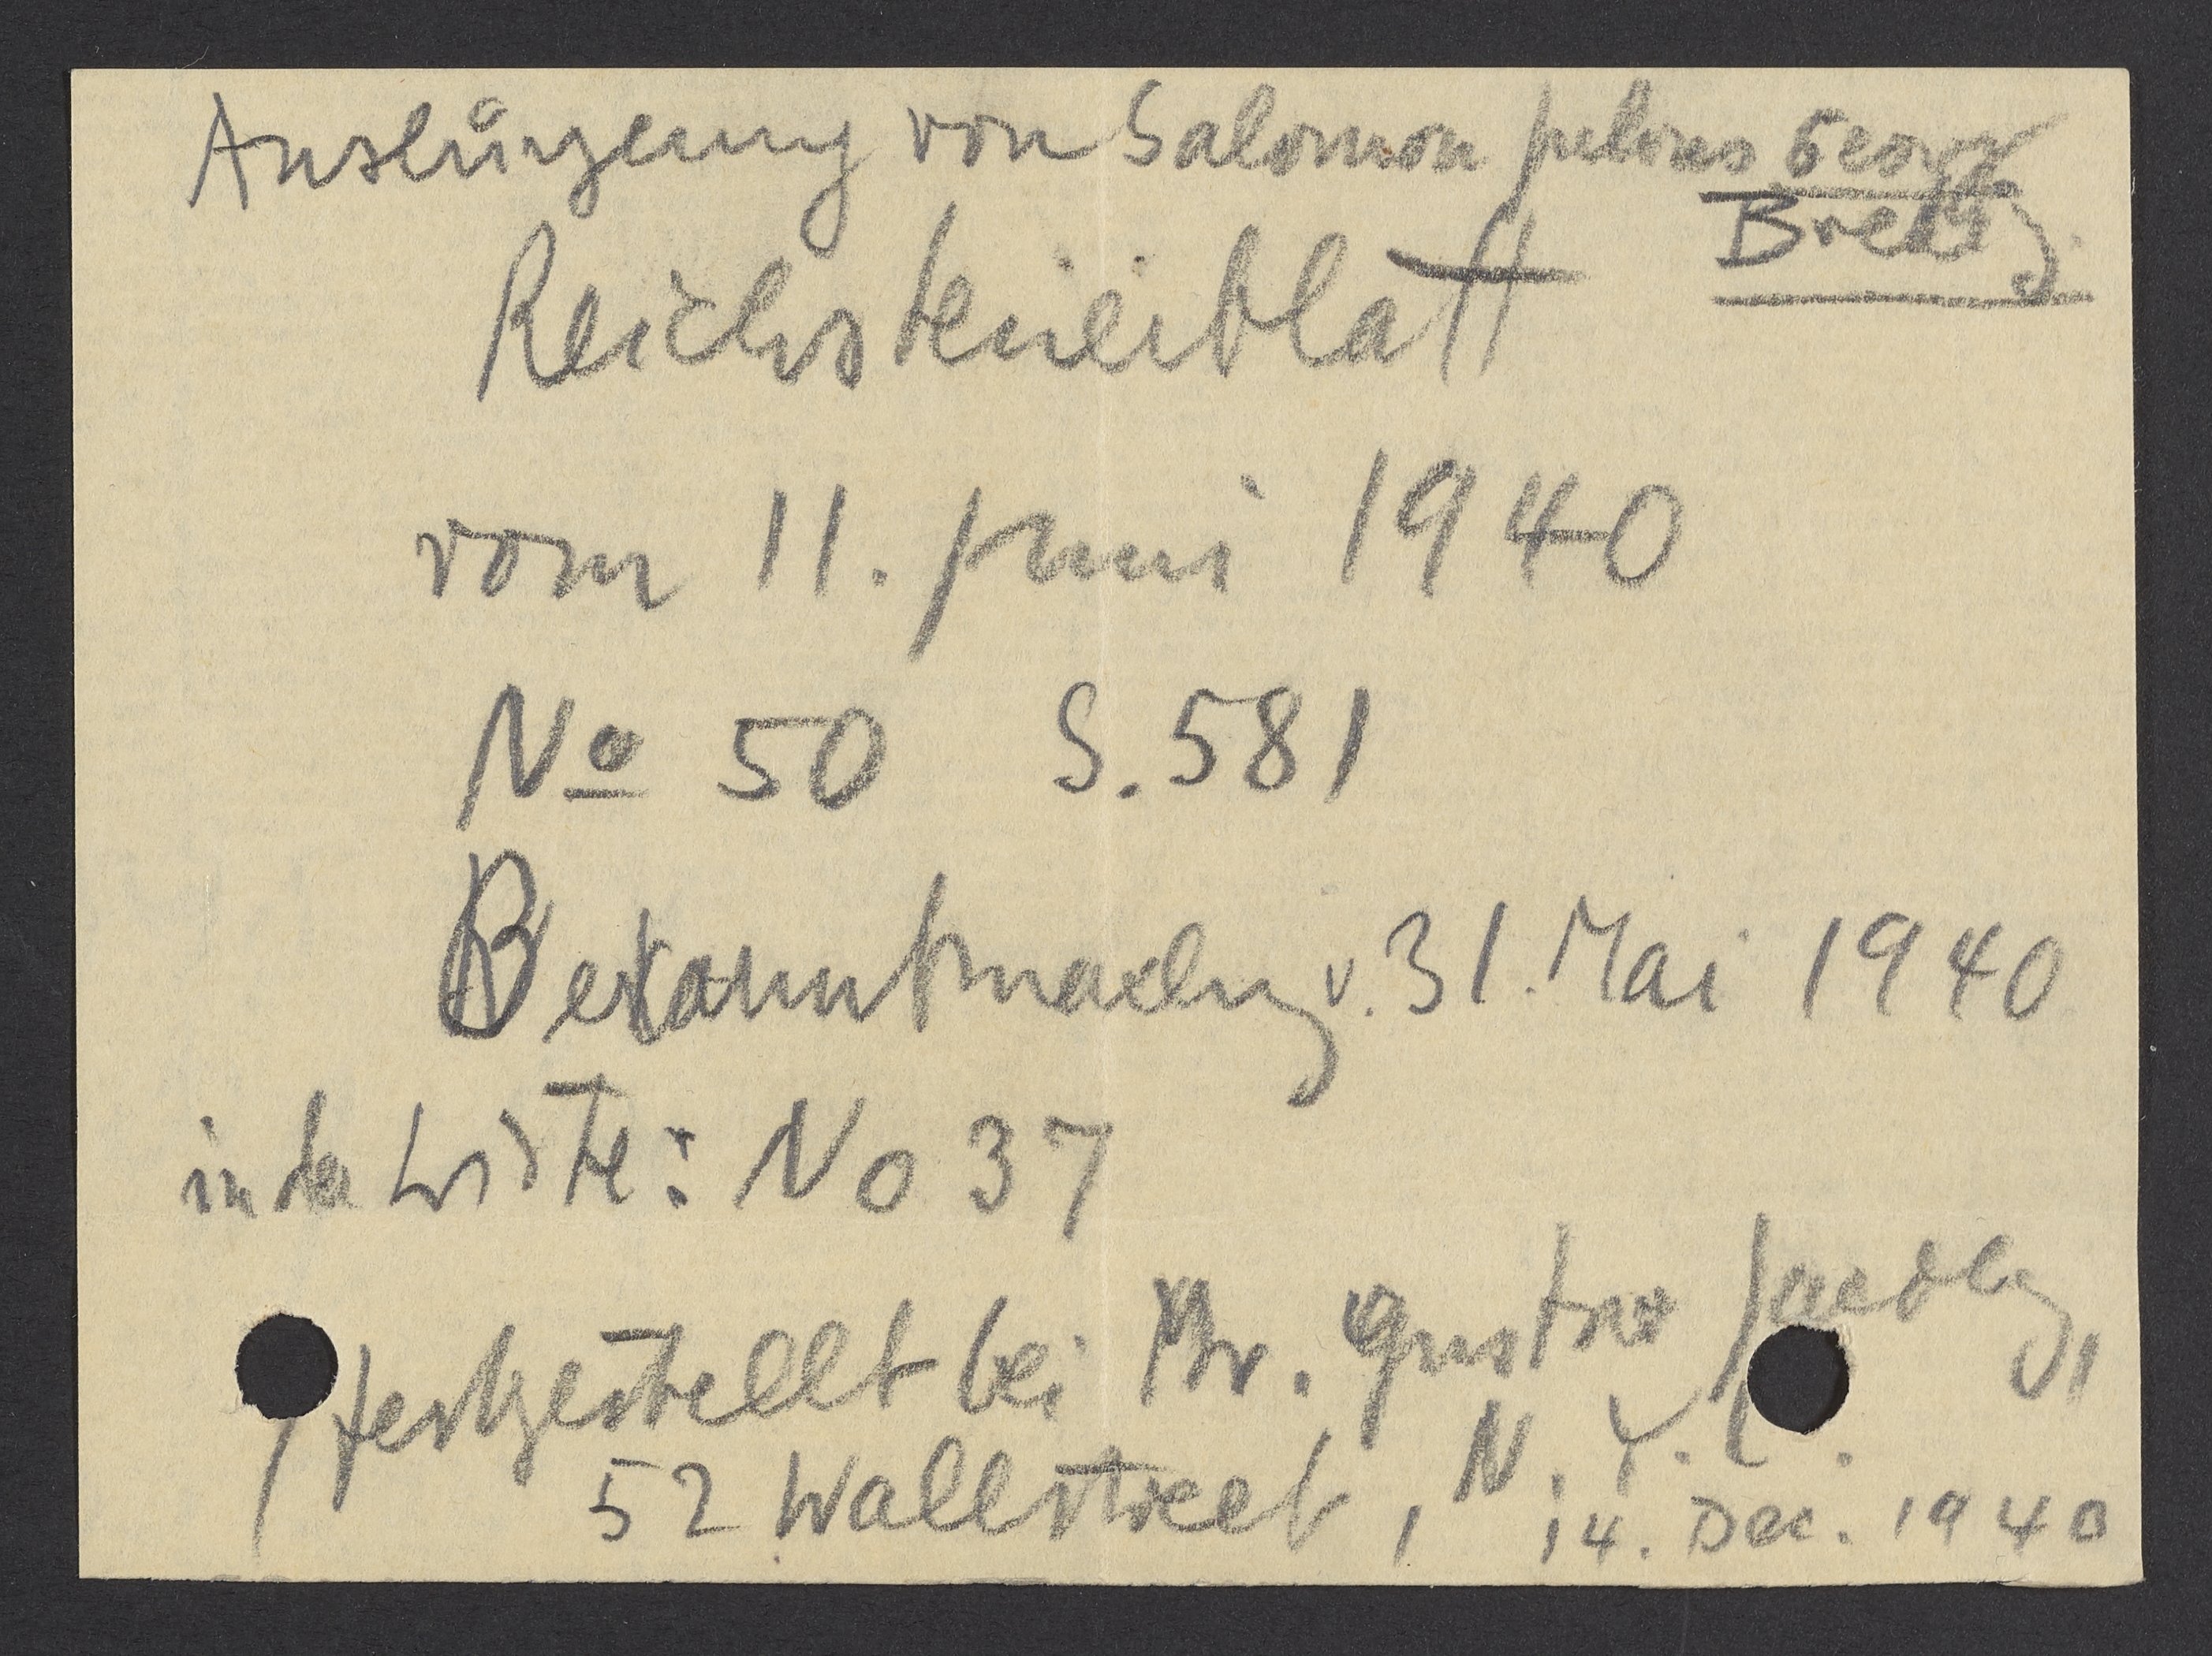 Ausbürgerung von Salomon Julius Georg
Brettg
Reichsteuerblatt
vom 11. Juni 1940
No 50 S. 581
Bekanntmachung v. 31. Mai 1940
in der Liste: No 37
festgestellt bei Mr. Gustav
52 Wallstreet, N. Y. C.
14. Dec. 1940